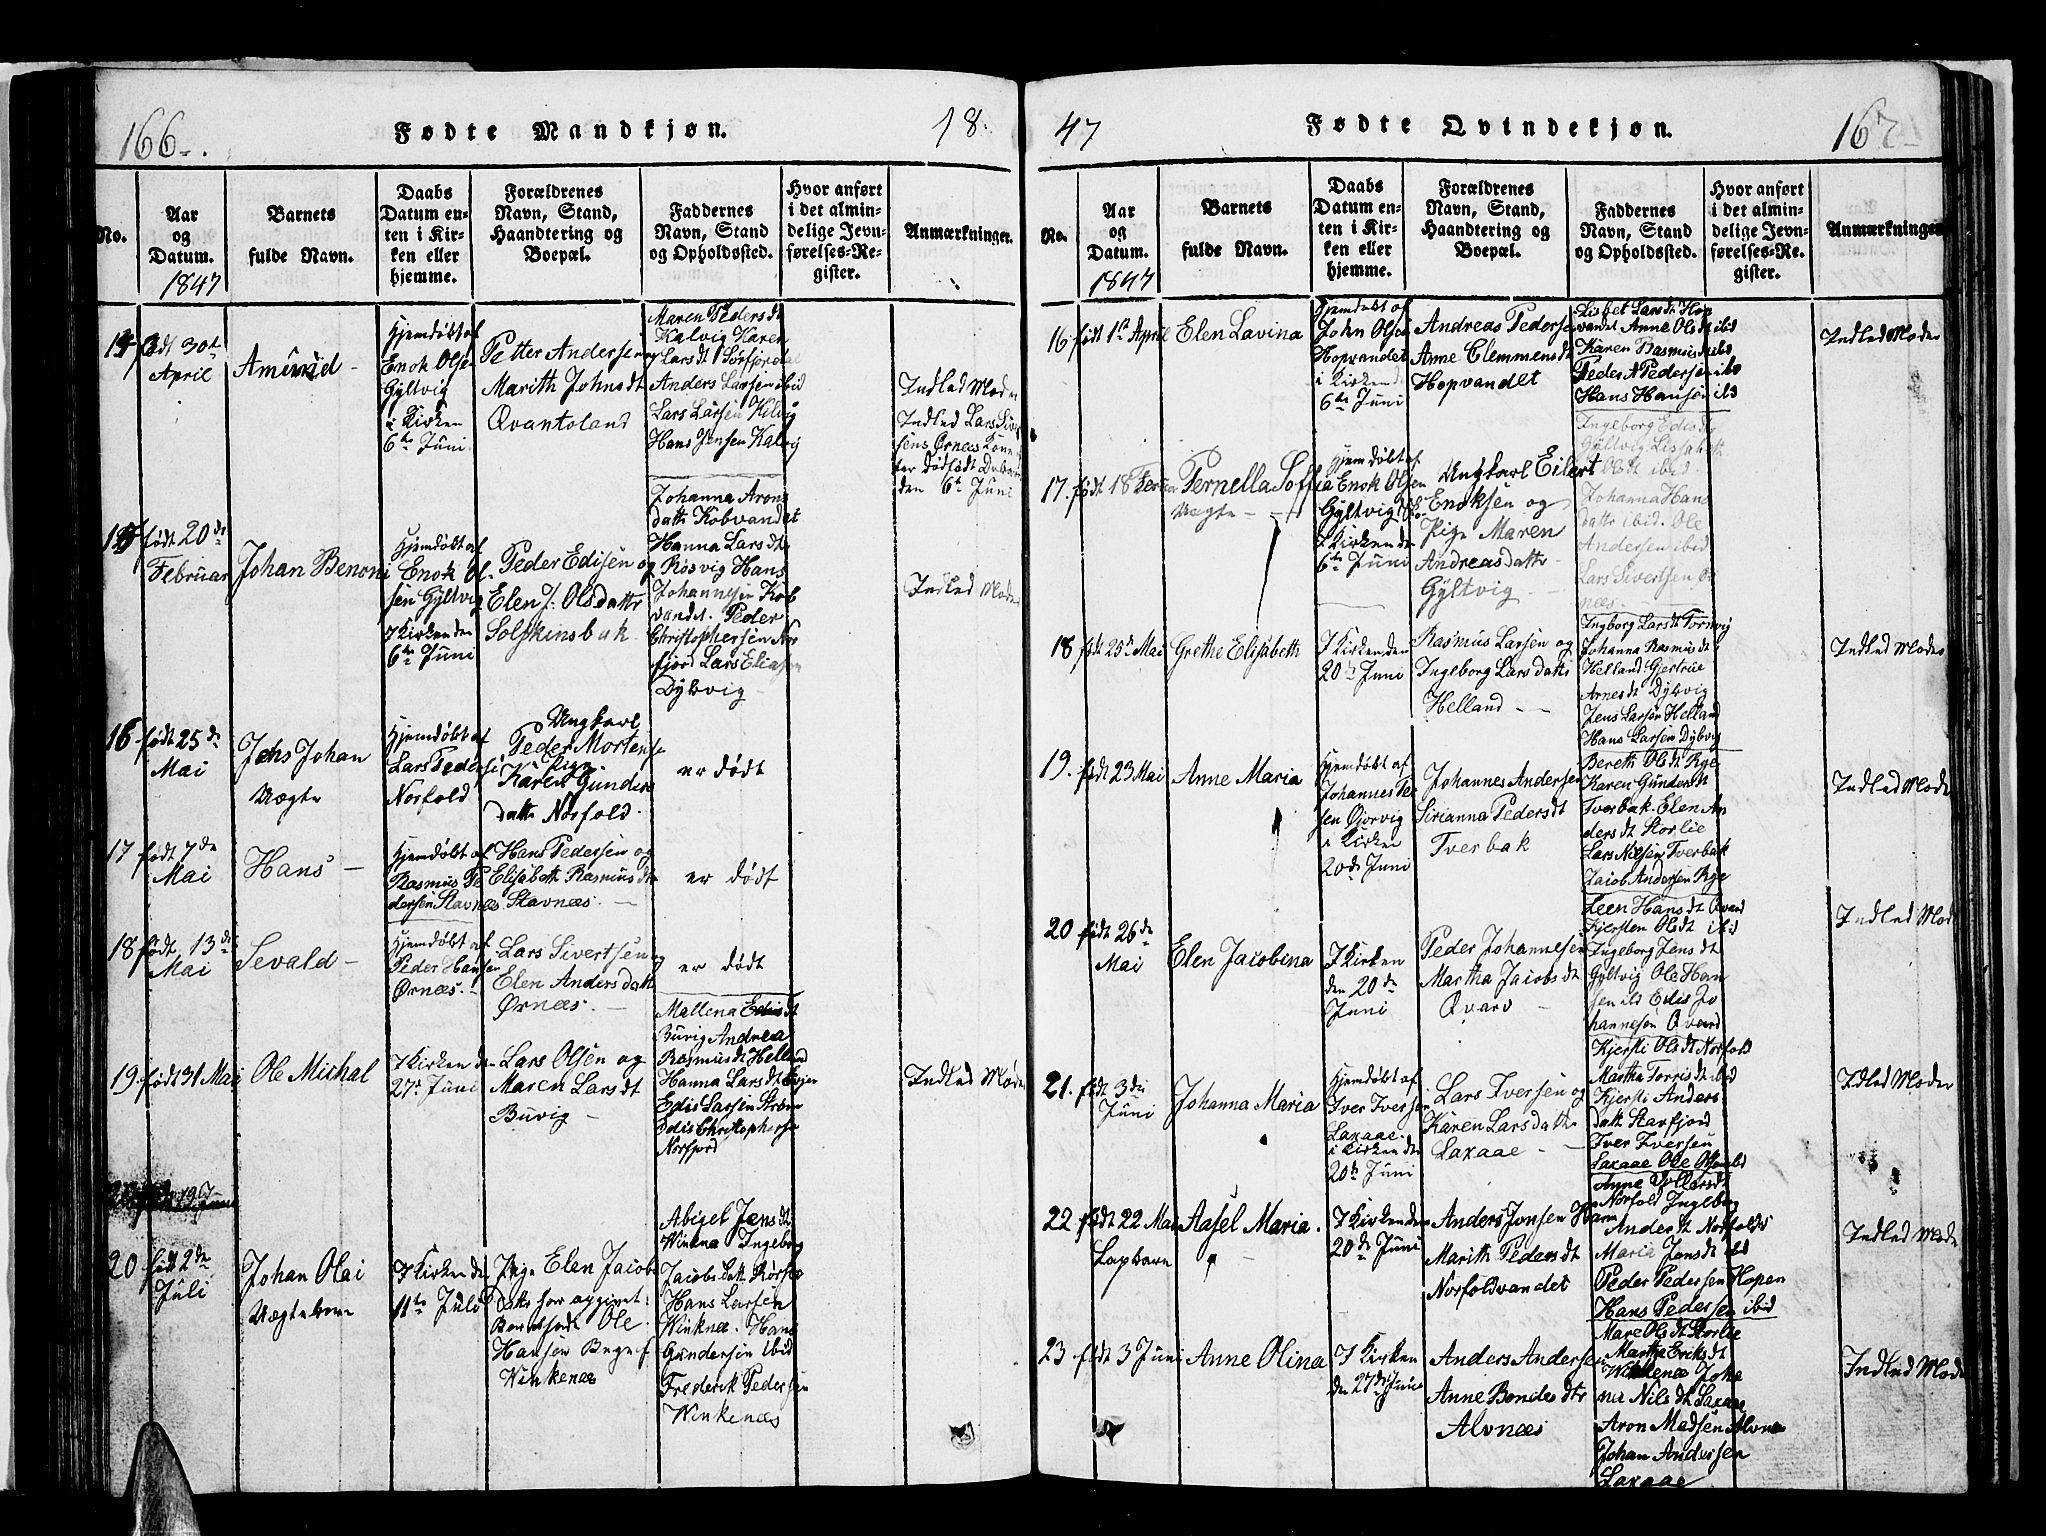 166
Fødte Mandkjøn.
18
No.
Aar
og
Datum.
1847
Barnets
fulde Navn.
Daabs
Datum en-
ten i Kir-
ken eller
hjemme.
Forældrenes
Navn, Stand,
Haandtering og
Boepæl.
Faddernes
Navn, Stand
og Opholdssted.
Hvor anført
i det almin-
delige Jevn-
førelses-Re-
gister.
Anmærkninger.
født 30te
April
Amund
Hjemdøbt af
Enok Olsen
Gyltvig
i Kirken
6te Juni
Petter Andersen og
Marith Johnsdt
Qvantoland
Maren Pedersdt
Kalvig Karen
Larsdt Sørfjordal
Anders Larsen ibid
Lars Larsen Kalvig
Hans Jensen Kalvig
Indled Moder
Indled Lars Siver
sens Ørnæs Kone
den 6te Juni
født 20de
Februar
Johan Benoni
Hjemdøbt af
Enok Ol-
sen Gyltvig
I Kirken den
6te Juni
Peder Edisen og
Elen J. Olsdattr
Solskinsbak
Johanna Arons
datt Kobvandet
Hanna Larsdt
Røsvig Hans
Johannesen Kob
vandet. Peder
Christophersen Nor
fjord Lars Eliasen
Dybvig
Indled Moder
16
født 25de
Mai
Jens Johan
Uægte
Hjemdøbt af
Lars Pedersen
Norfold
Ungkarl
Peder Mortensen
Pige
Karen Gunders
datt Norfold
er død
17
født 7de
Mai
Hans
Hjemdøbt af
Rasmus Pe
dersen Stavnæs
Hans Pedersen og
Elisabeth Rasmusdtr
Stavnæs.
er død
18
født 13de
Mai
Sevald
Hjemdøbt af
Peder Hansen
Ørnæs.
Lars Sivertsen og
Elen Andersdatt
Ørnæs
er død
19.
født 31 Mai
Ole Michal
I Kirken den
27de Juni
Lars Olsen og
Maren Larsdt
Buvig
Mallena Edisdt
Buvig Andrea
Rasmusdt Helland
Hanna Larsdt Evjen
Edis Larsen Strøm
Edis Christophersen
Norfjord
Indled Moder
20
født 2de
Juli
Johan Olai
Uægte
I Kirken den
11te Juli
Pige Elen Jacobs
datter har opgivet
Barnefader Ole
Hansen
Winkenæs
Abigel Jensdt
Winknæ Ingeborg
Jacobsdatt Rørsvo
Hans Larsen
Winknæ. Hans
Gundersen ibid
Frederik Pedersen
Winkenæs
47
Fødte Qvindekjøn.
167
No.
Aar
og
Datum.
1847
Barnets
fulde Navn.
Daabs
Datum en-
ten i Kir-
ken eller
hjemme.
Forældrenes
Navn, Stand,
Haandtering og
Boepæl.
Faddernes
Navn, Stand
og Opholdssted.
Hvor anført
i det almin-
delige Jevn-
førelses-Re-
gister.
Anmærkninger
16
født 1te April
Elen Lavina
Hjemdøbt af
John Olsen
Hopvandet
i Kirken d
6te Juni
Andreas Pedersen
Anne Clemmensdt
Hopvandet
Lisbet Larsdt Hop
vandet Anne Olsdt ibid
Karen Rasmusdt ibid
Peder N Pedersen ibd
Hans Hansen ibd
Indled Moder
17.
født 18 Februar
Pernella Soffia
Uægte
Hjemdøbt af
Enok Olsen
Gyltvig
I Kirken den
6te Juni
Ungkarl Eilert
Enoksen og
Pige Maren
Andreasdattr
Gyltvig
Ingeborg Edisdt
Gyltvig Lisabeth
Olsdt ibid.
Johanna Hans
datt ibid. Ole
Andersen ibid
Lars Sivertsen Ør
næs
18
født 25de Mai
Grethe Elisabeth
I Kirken den
20de Juni
Rasmus Larsen og
Ingeborg Larsdatt
Helland
Ingborg Larsdt Tornvig
Johanna Rasmusdt
Helland Gjertrue
Arnesdt Dybvig
Jens Larsen Helland
Hans Larsen Dybvig
Indled Moder
19.
født 23 Mai
Anne Maria
Hjemdøbt af
Johannes Pe
sen Qjorvig
i Kirken
20de Juni
Johannes Andersen
Sirianna Pedersdt
Tverbak
Bereth Olsdt Rye
Karen Gundersdt
Tverbak. Elen An
dersdt Storlie
Lars Nilsen Tverbak
Jacob Andersen Rye
Indled Moder
20
født 26de
Mai
Elen Jacobina
I Kirken
den 20de
Juni
Peder Johannesen
Martha Jacobsdt
Qvarv
Leen Hansdt Qvarv
Kjersten Olsdt ibid
Ingeborg Jensdt
Gyltvig Ole Han
sen ib Edis Jo
hannesen Qvarv
Indled Mod
21.
født 3de
Juni
Johanna Maria
Hjemdøbt af
Iver Iversen
Laxaae.
i Kirken den
20de Juni
Lars Iversen og
Karen Larsdatt
Laxaae
Kjersti Olsdt Norfold
Martha Torrisdt ibid
Kjersti Anders
datt Storfjord
Iver Iversen
Laxaae Ole Olsen ibd
Idled Moder
22
født 22 Mai
Lapbarn
Aasel Maria.
I Kirken den
20de Juni
Anders Jonsen
Marith Pedersdt
Norfoldvandet
Anne Ollersdt
Norfold Ingeborg
Andersdt Norfolds
Maria Jensdt ibd
Peder Pedersen Hopen
Hans Pedersen ibid
Indled Mode
23
født 3 Juni
Anne Olina
I Kirken
den 27de Juni
Anders Andersen
Anne Bendesdtr
Alvnæs
Mare Olsdt Storlie
Martha Eriksdt
Winkenæs Joha
na Nilsdt Laxaae
Aron Madsen Alvnæs
Johan Andersen
Laxaae
Indled Mode